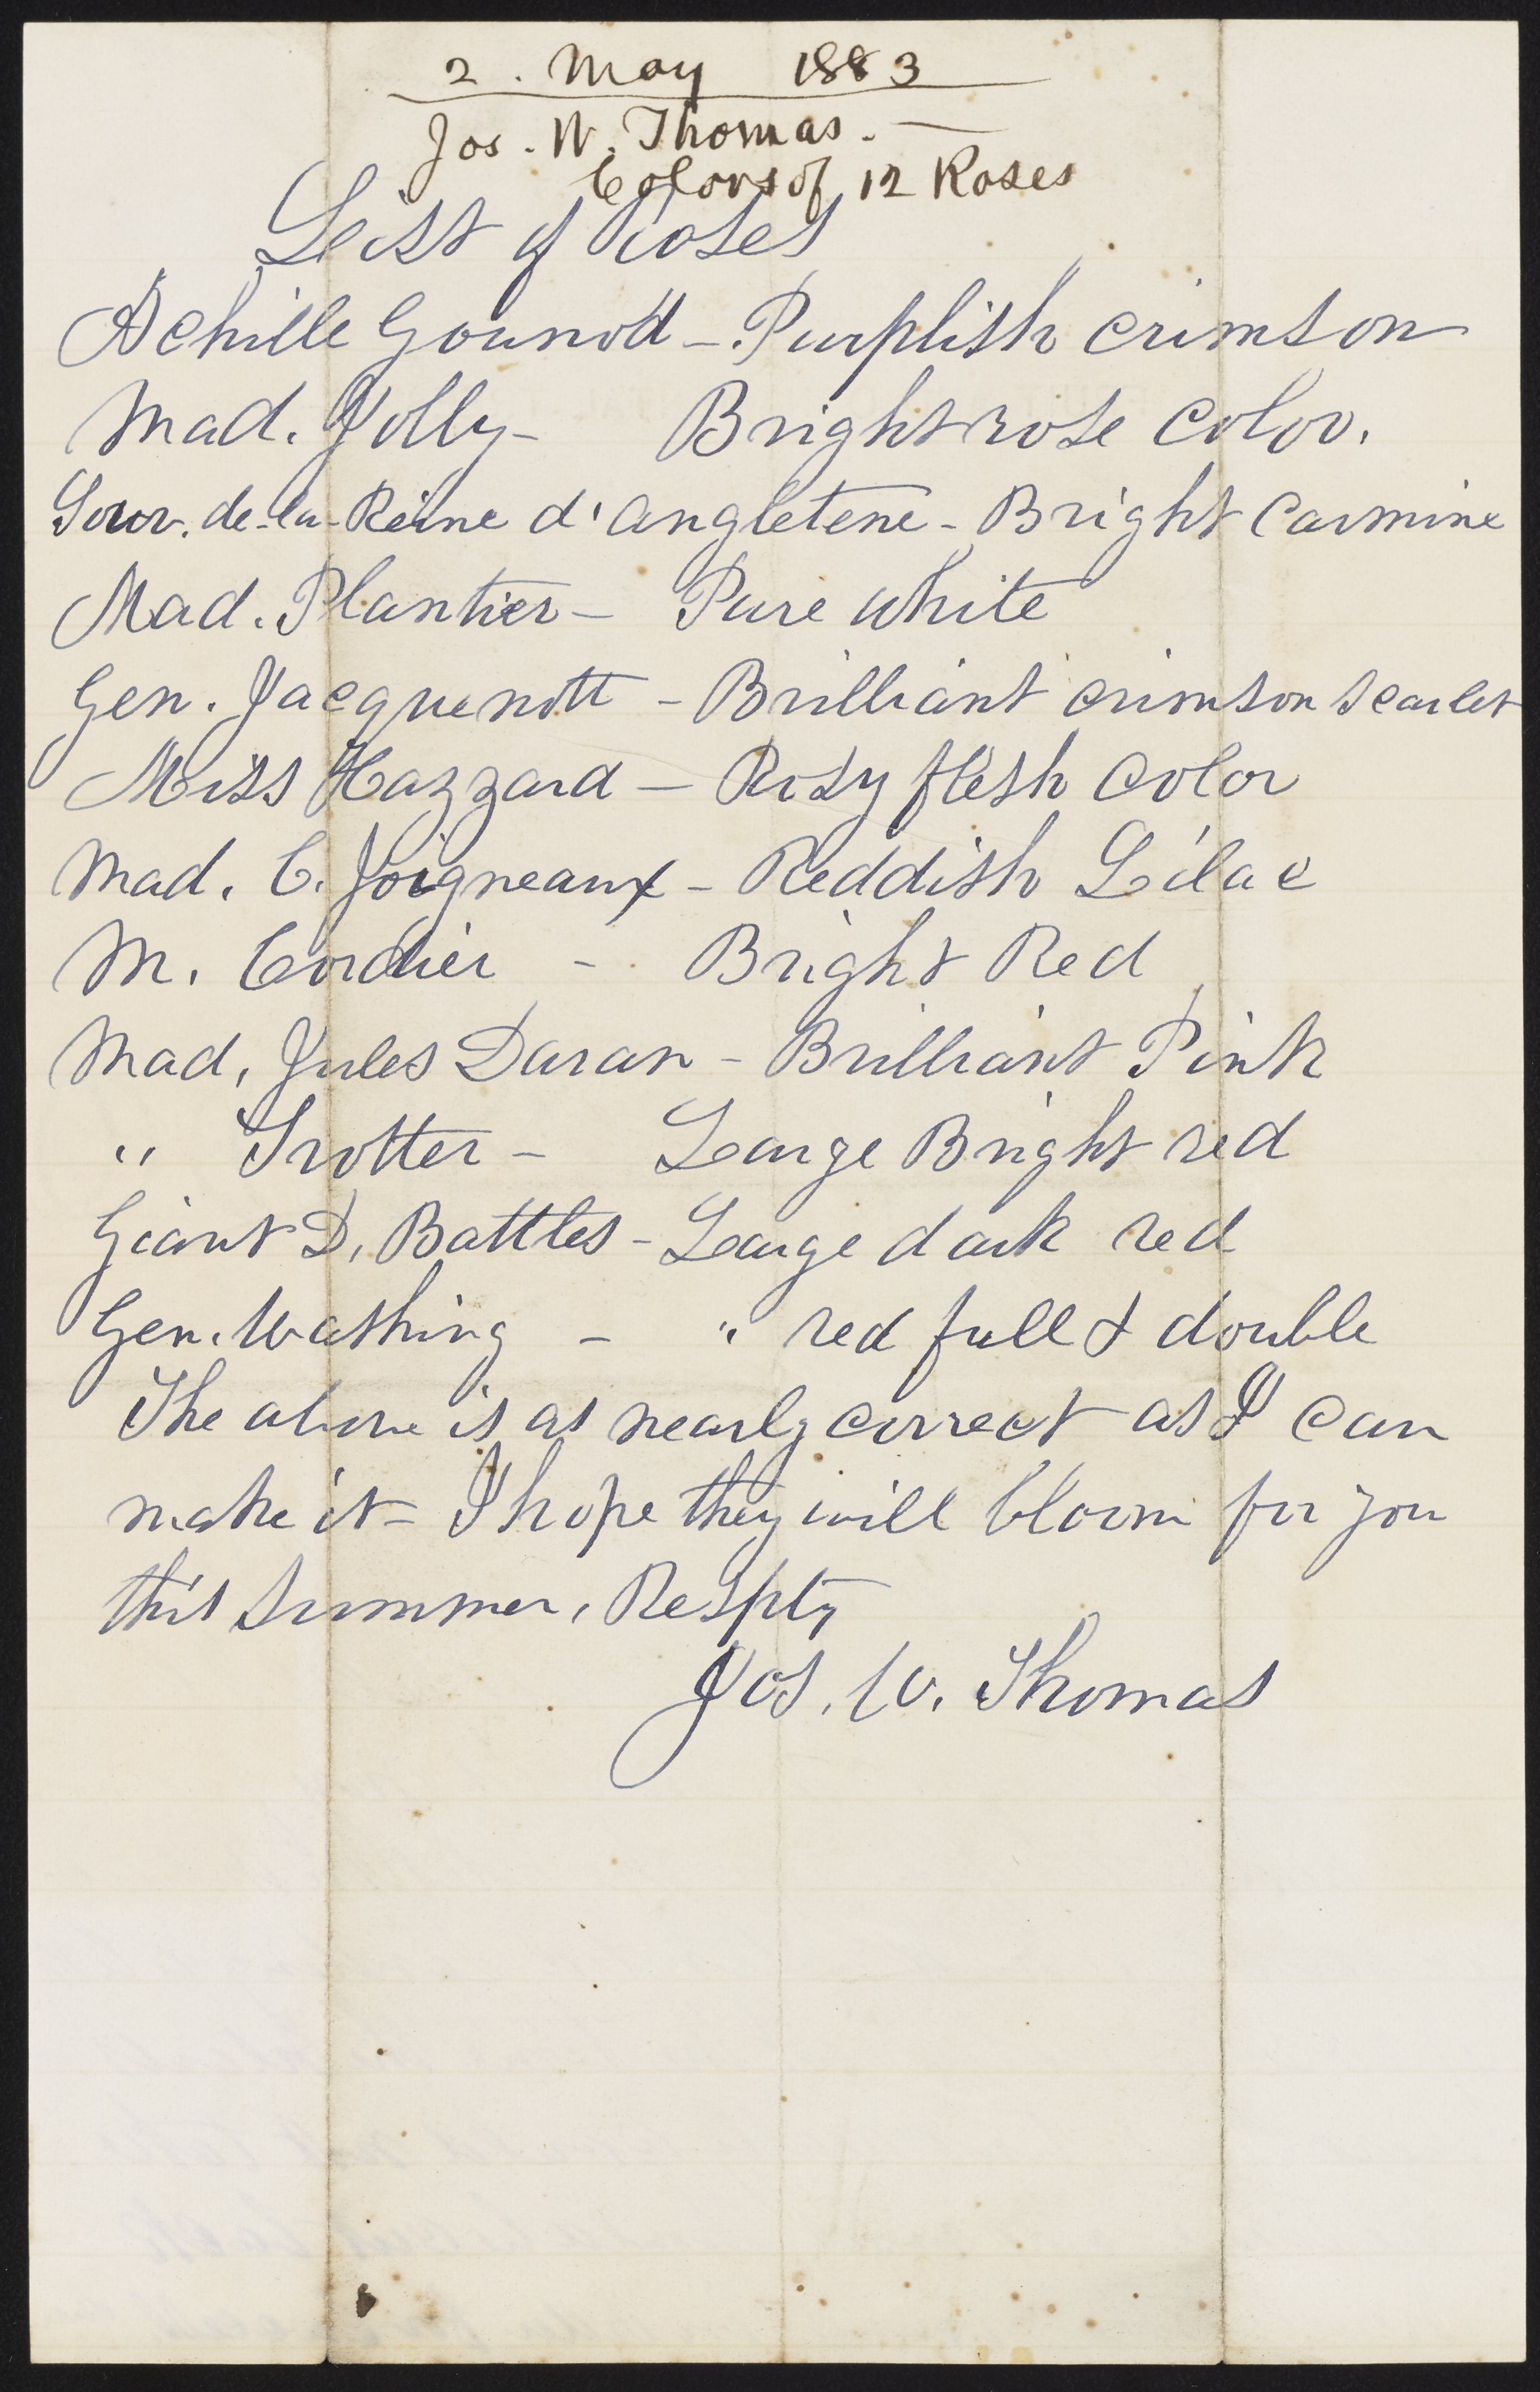 2. May 1883
Jos. W. Thomas. —
Colors of 12 Roses
List of Roses
Achille Gounod - Purplish crimson
Mad. Jolly - Bright rose color.
Souv. de-la-Reine d'angleterre - Bright Carmine
Mad. Plantier - Pure white
Gen. Jacquenott - Brilliant crimson scarlet
Miss Hazzard - Rosy flesh color
Mad. C. Joigneaux - Reddish Lilac
M. Cordier - Bright Red
Mad. Jules Daran - Brilliant Pink
" Trotter - Large Bright red
Giant D. Battles - Large dark red
Gen. Washing - " red full & double
The above is as nearly correct as I can
make it - I hope they will bloom for you
this summer, Respty
Jos. W. Thomas